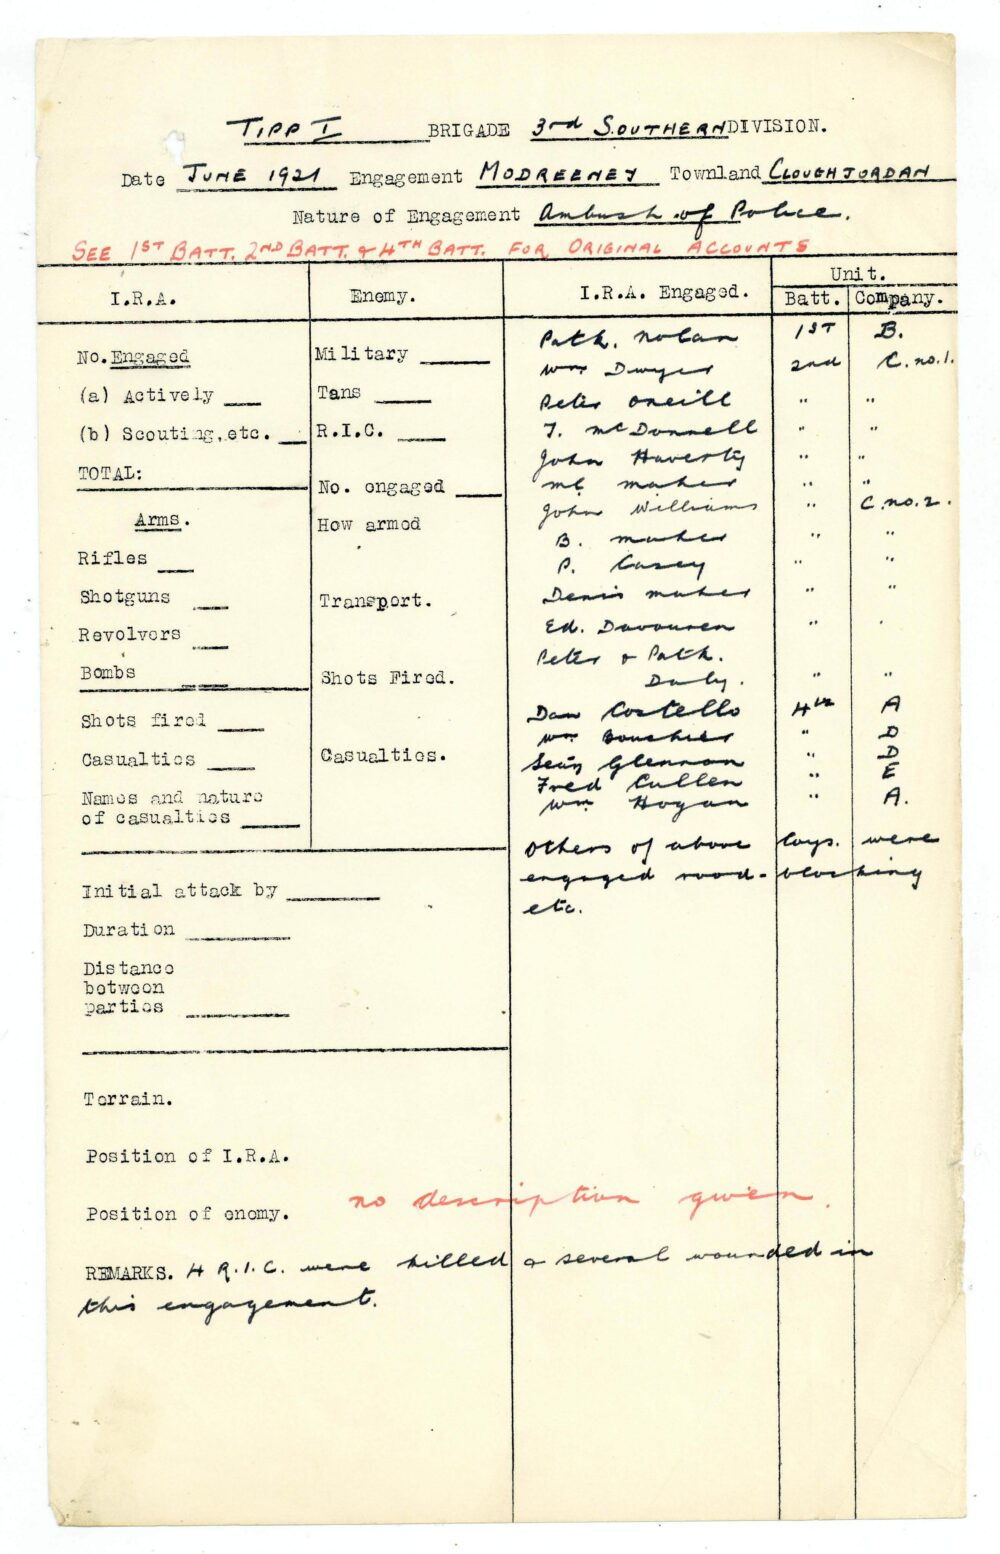 TIPP I BRIGADE 3rd SOUTHERN DIVISION.
Date JUNE 1921 Engagement MODREENEY Townland CLOUGHJORDAN
Nature of Engagement Ambush of Police.
SEE 1ST BATT. 2ND BATT. & 4TH BATT. FOR ORIGINAL ACCOUNTS
I.R.A.
Enemy.
I.R.A. Engaged.
Unit.
Batt. Company.
No. Engaged
(a) Actively
(b) Scouting, etc.
TOTAL:
Arms.
Rifles
Shotguns
Revolvers
Bombs
Shots fired
Casualties
Names and nature
of casualties
Military
Tans
R.I.C.
No. engaged
How armed
Transport.
Shots Fired.
Casualties.
Path. Nolan 1ST B.
Wm Dwyer 2nd C. no. 1.
Peter Oneill " "
T. McDonnell " "
John Haverty " "
Ml Maher " "
John Williams " C. no. 2.
B. Maher " "
P. Casey " "
Denis Maher " "
Ed. Davouren "
Peter & Path.
Daly. " "
Dan Costello 4th A
Wm Bouchier " D
Seán Glennon " D
Fred Cullen " E
Wm Hogan " A.
Others of above Coys. were
engaged road-blocking
etc.
Initial attack by
Duration
Distance
between
parties
Terrain.
Position of I.R.A.
Position of enemy. no description given.
REMARKS. 4 R.I.C. were killed & several wounded in
this engagement.